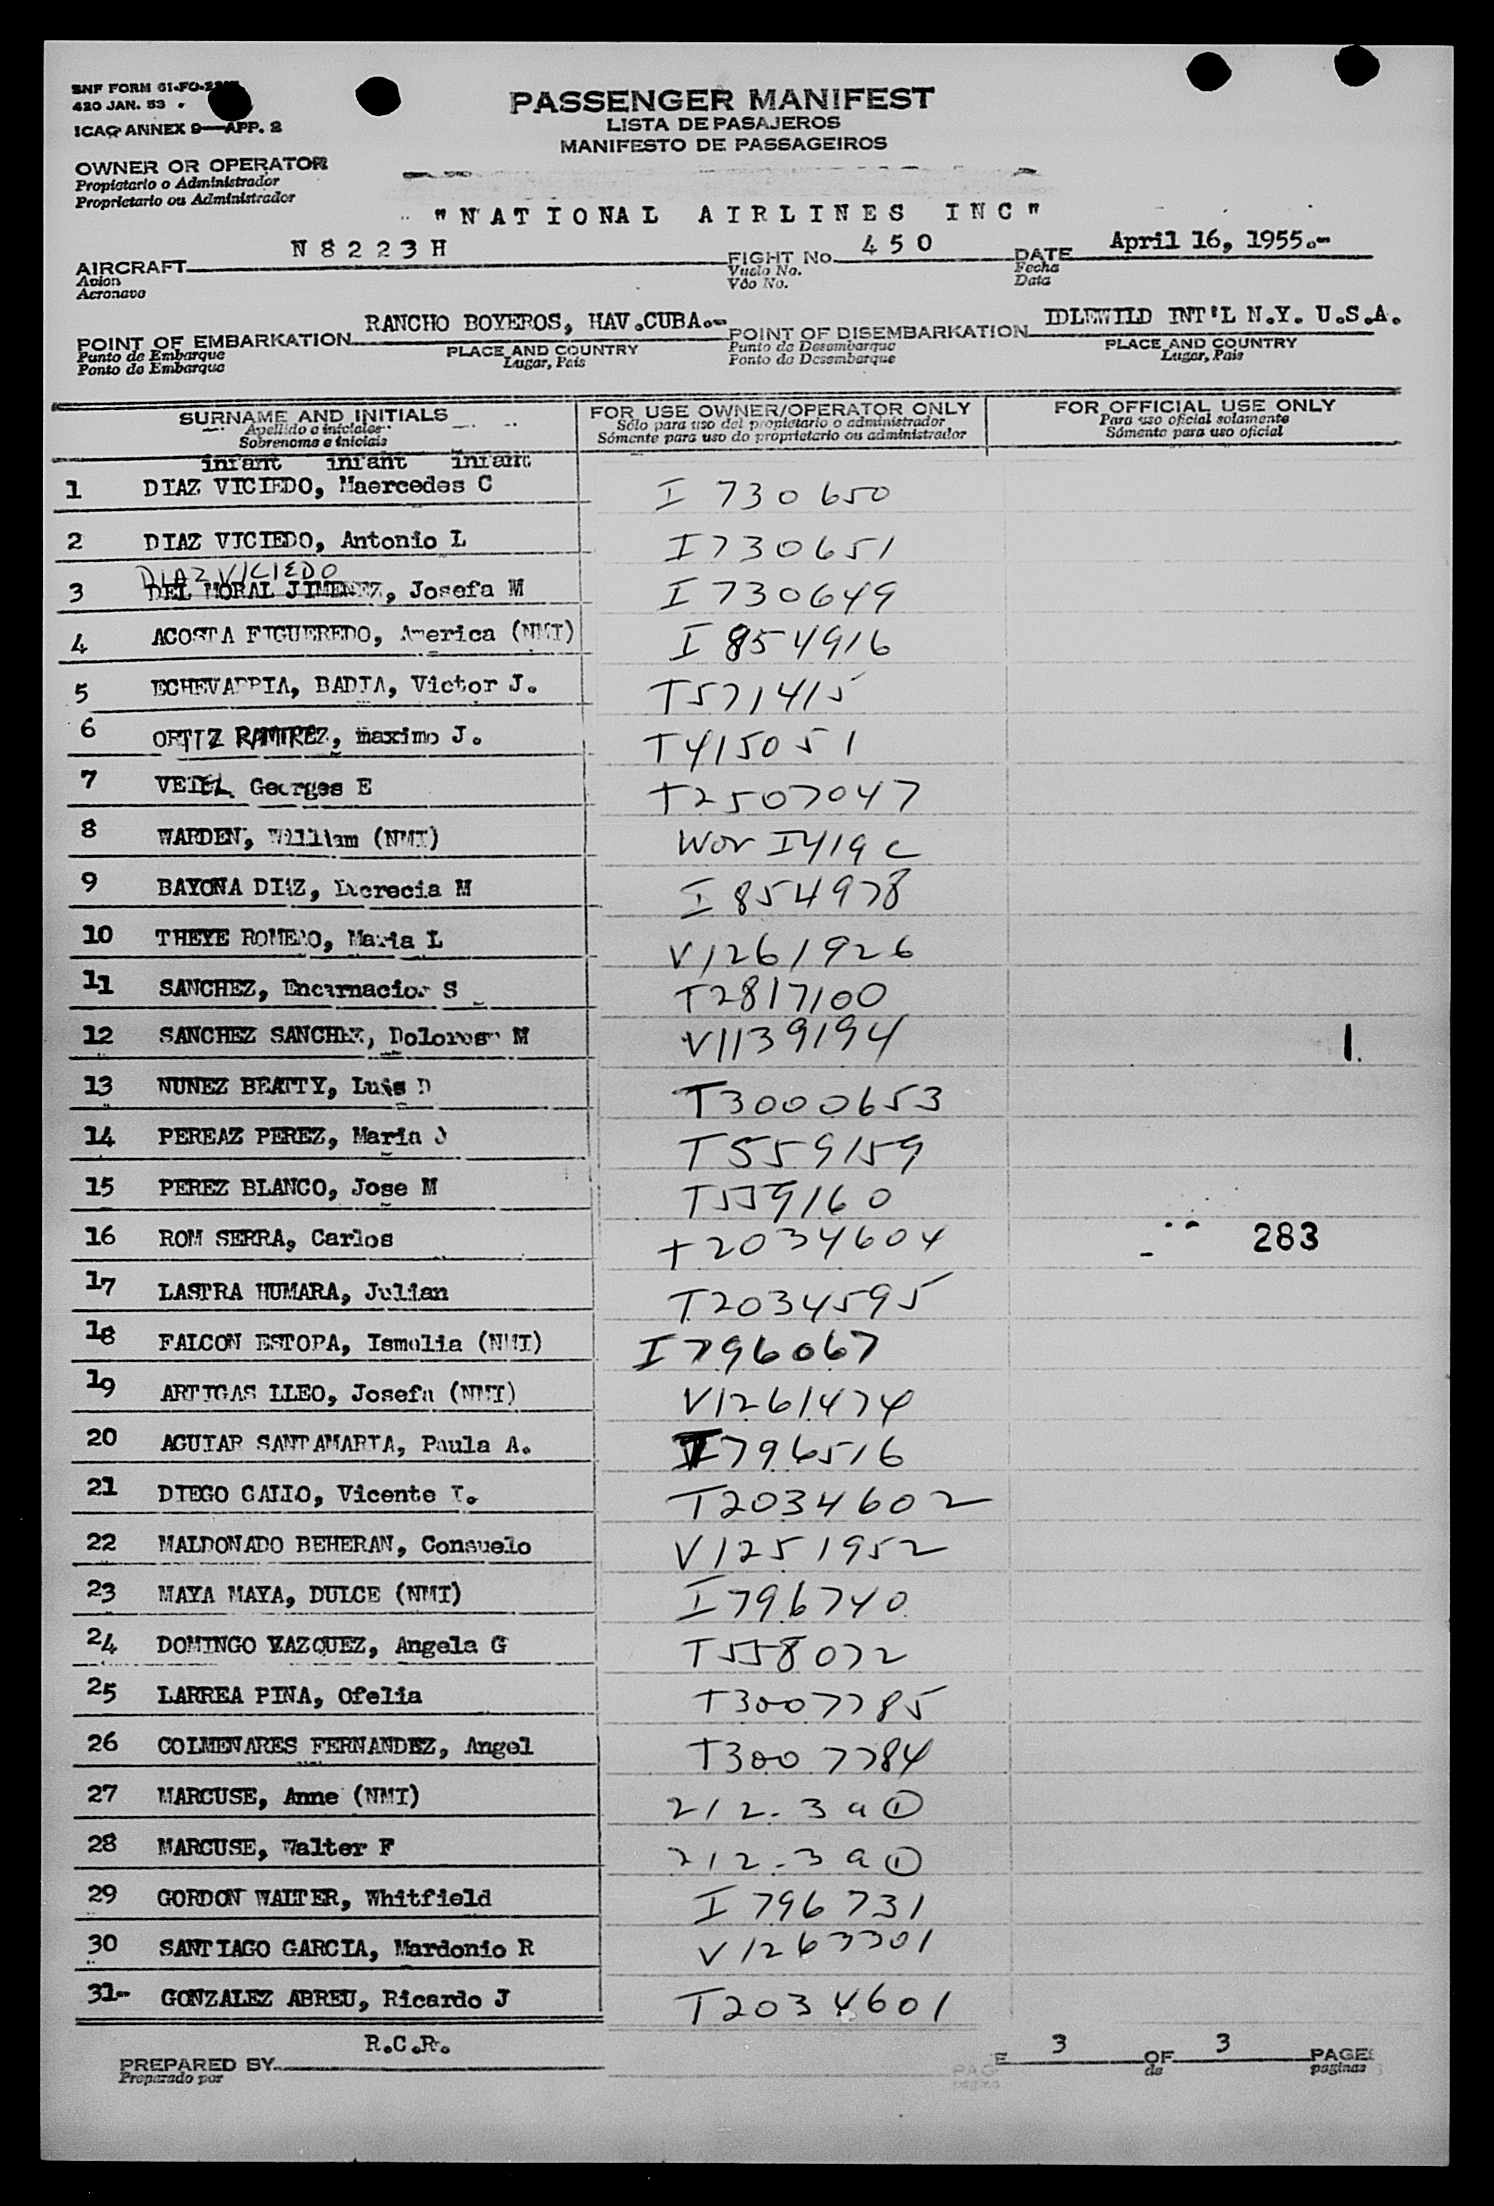 PASSENGER MANIFEST
LISTA DE PASAJEROS
MANIFESTO DE PASSAGEIROS
SNF FORM 61-FO-
420 JAN. 53
ICAO ANNEX 9—APP. 2
OWNER OR OPERATOR
Propietario o Administrador
Proprietario ou Administrador
"NATIONAL AIRLINES INC"
AIRCRAFT N8223H FIGHT No. 450 DATE April 16, 1955.-
Avion Vuelo No. Fecha
Aeronave Vôo No. Data
POINT OF EMBARKATION RANCHO BOYEROS, HAV.CUBA.- POINT OF DISEMBARKATION IDLEWILD INT'L N.Y. U.S.A.
Punto de Embarque PLACE AND COUNTRY Punto de Desembarque PLACE AND COUNTRY
Ponto de Embarque Lugar, Pais Ponto de Desembarque Lugar, Pais
SURNAME AND INITIALS FOR USE OWNER/OPERATOR ONLY FOR OFFICIAL USE ONLY
Apellido e iniciales Sólo para uso del propietario o administrador Para uso oficial solamente
Sobrenome e iniciais Sómente para uso do proprietario ou administrador Sómente para uso oficial
infant infant infant
1 DIAZ VICIEDO, Maercedes C I 730650
2 DIAZ VICIEDO, Antonio L I730651
DIAZ VICIEDO
3 DEL MORAL JIMENEZ, Josefa M I 730649
4 ACOSTA FIGUEREDO, America (NMI) I 854916
5 ECHEVARRIA, BADIA, Victor J. T571415
6 ORTIZ RAMIREZ, maximo J. T415051
7 VEIEL Georges E T2507047
8 WARDEN, William (NMI) Wor I419 C
9 BAYONA DIAZ, Lucrecia M I 854978
10 THEYE ROMERO, Maria L V1261926
11 SANCHEZ, Encarnacion S T2817100
12 SANCHEZ SANCHEZ, Dolores M V1139194 1
13 NUNEZ BEATTY, Luis D T3000653
14 PEREAZ PEREZ, Maria J T559159
15 PEREZ BLANCO, Jose M T559160
16 ROM SERRA, Carlos T2034604 283
17 LASTRA HUMARA, Julian T2034595
18 FALCON ESTOPA, Ismelia (NMI) I796067
19 ARTIGAS LLEO, Josefa (NMI) V1261474
20 AGUIAR SANTAMARIA, Paula A. I796516
21 DIEGO GALLO, Vicente I. T2034602
22 MALDONADO BEHERAN, Consuelo V1251952
23 MAYA MAYA, DULCE (NMI) I796740
24 DOMINGO VAZQUEZ, Angela G T558072
25 LARREA PINA, Ofelia T3007785
26 COLMENARES FERNANDEZ, Angel T3007784
27 MARCUSE, Anne (NMI) 212.3 a ①
28 MARCUSE, Walter F 212.3 a ①
29 GORDON WALTER, Whitfield I 796731
30 SANTIAGO GARCIA, Mardonio R V1263301
31- GONZALEZ ABREU, Ricardo J T2034601
PREPARED BY R.C.R. PAGE 3 OF 3 PAGES
Preparado por pagina de paginas